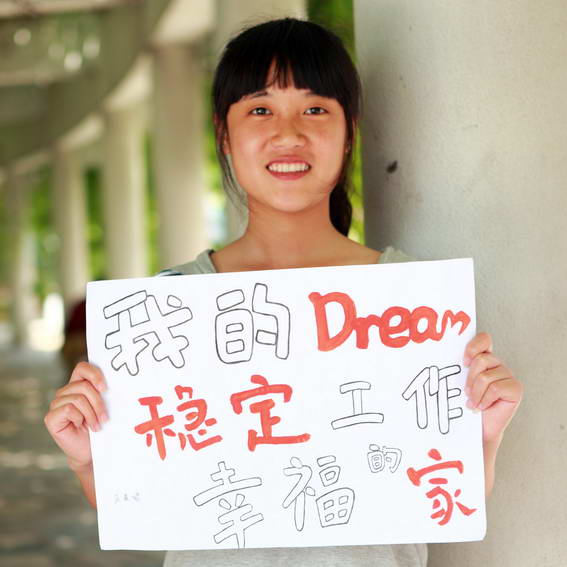 我的Dream
稳定工作
幸福的家